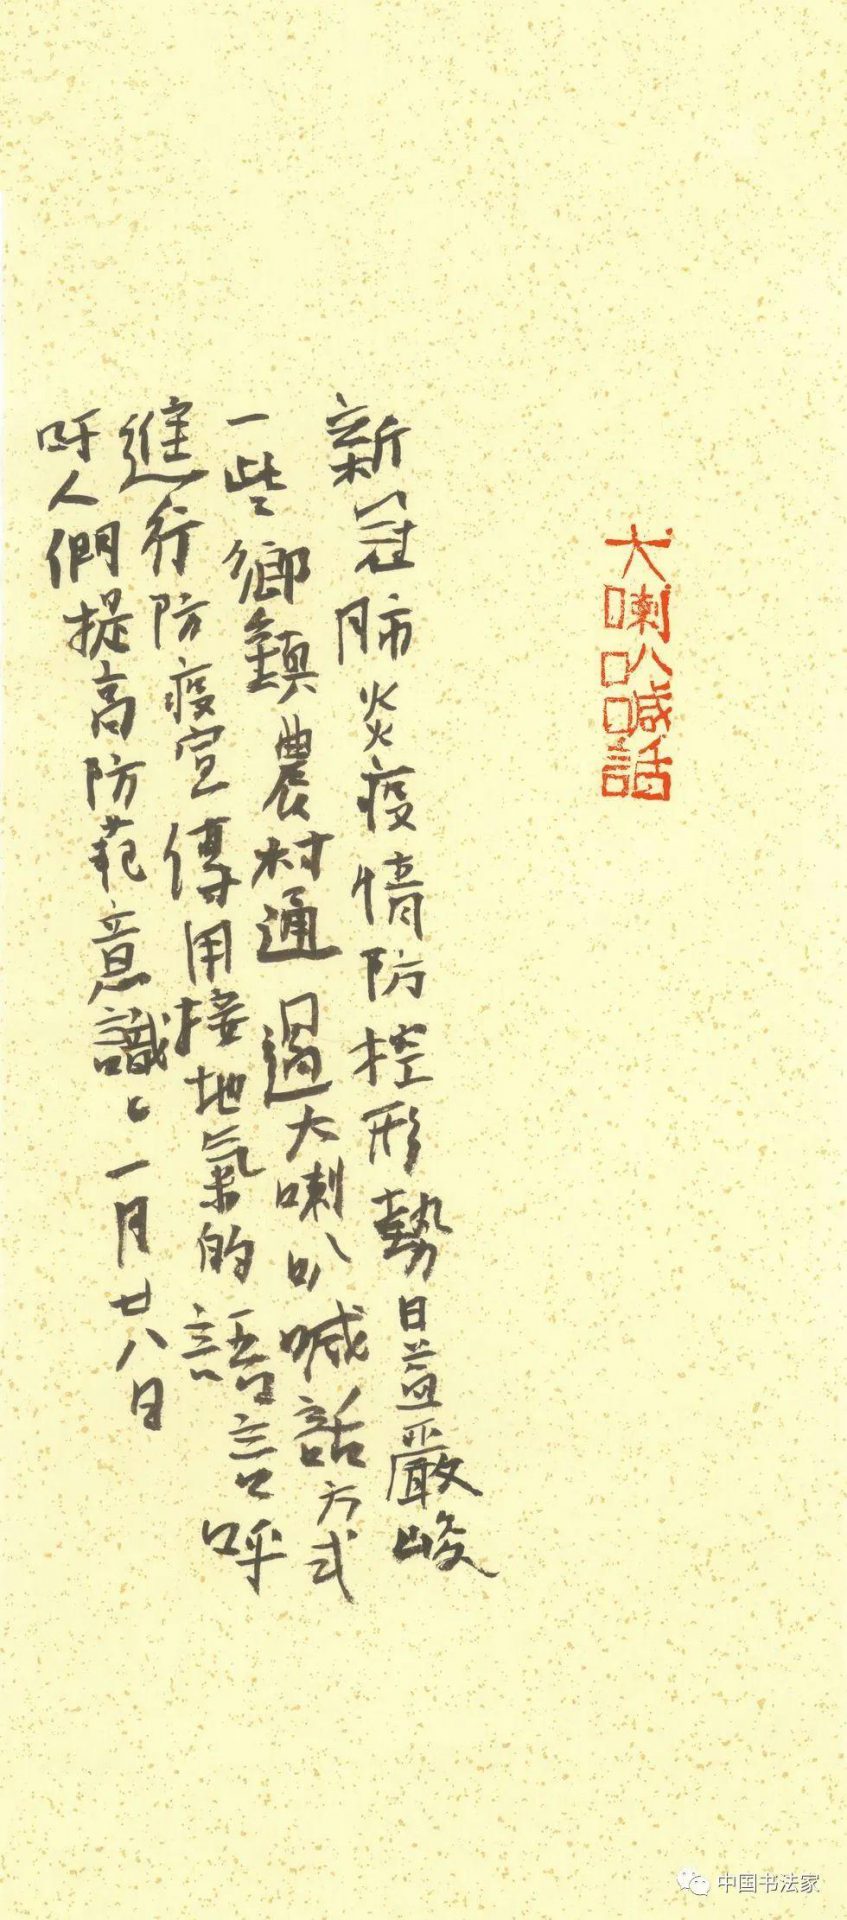 大喇叭喊話
新冠肺炎疫情防控形勢日益嚴峻
一些鄉鎮農村通過大喇叭喊話方式
進行防疫宣傳用接地氣的語言呼
吁人們提高防范意識
一月廿八日
中国书法家